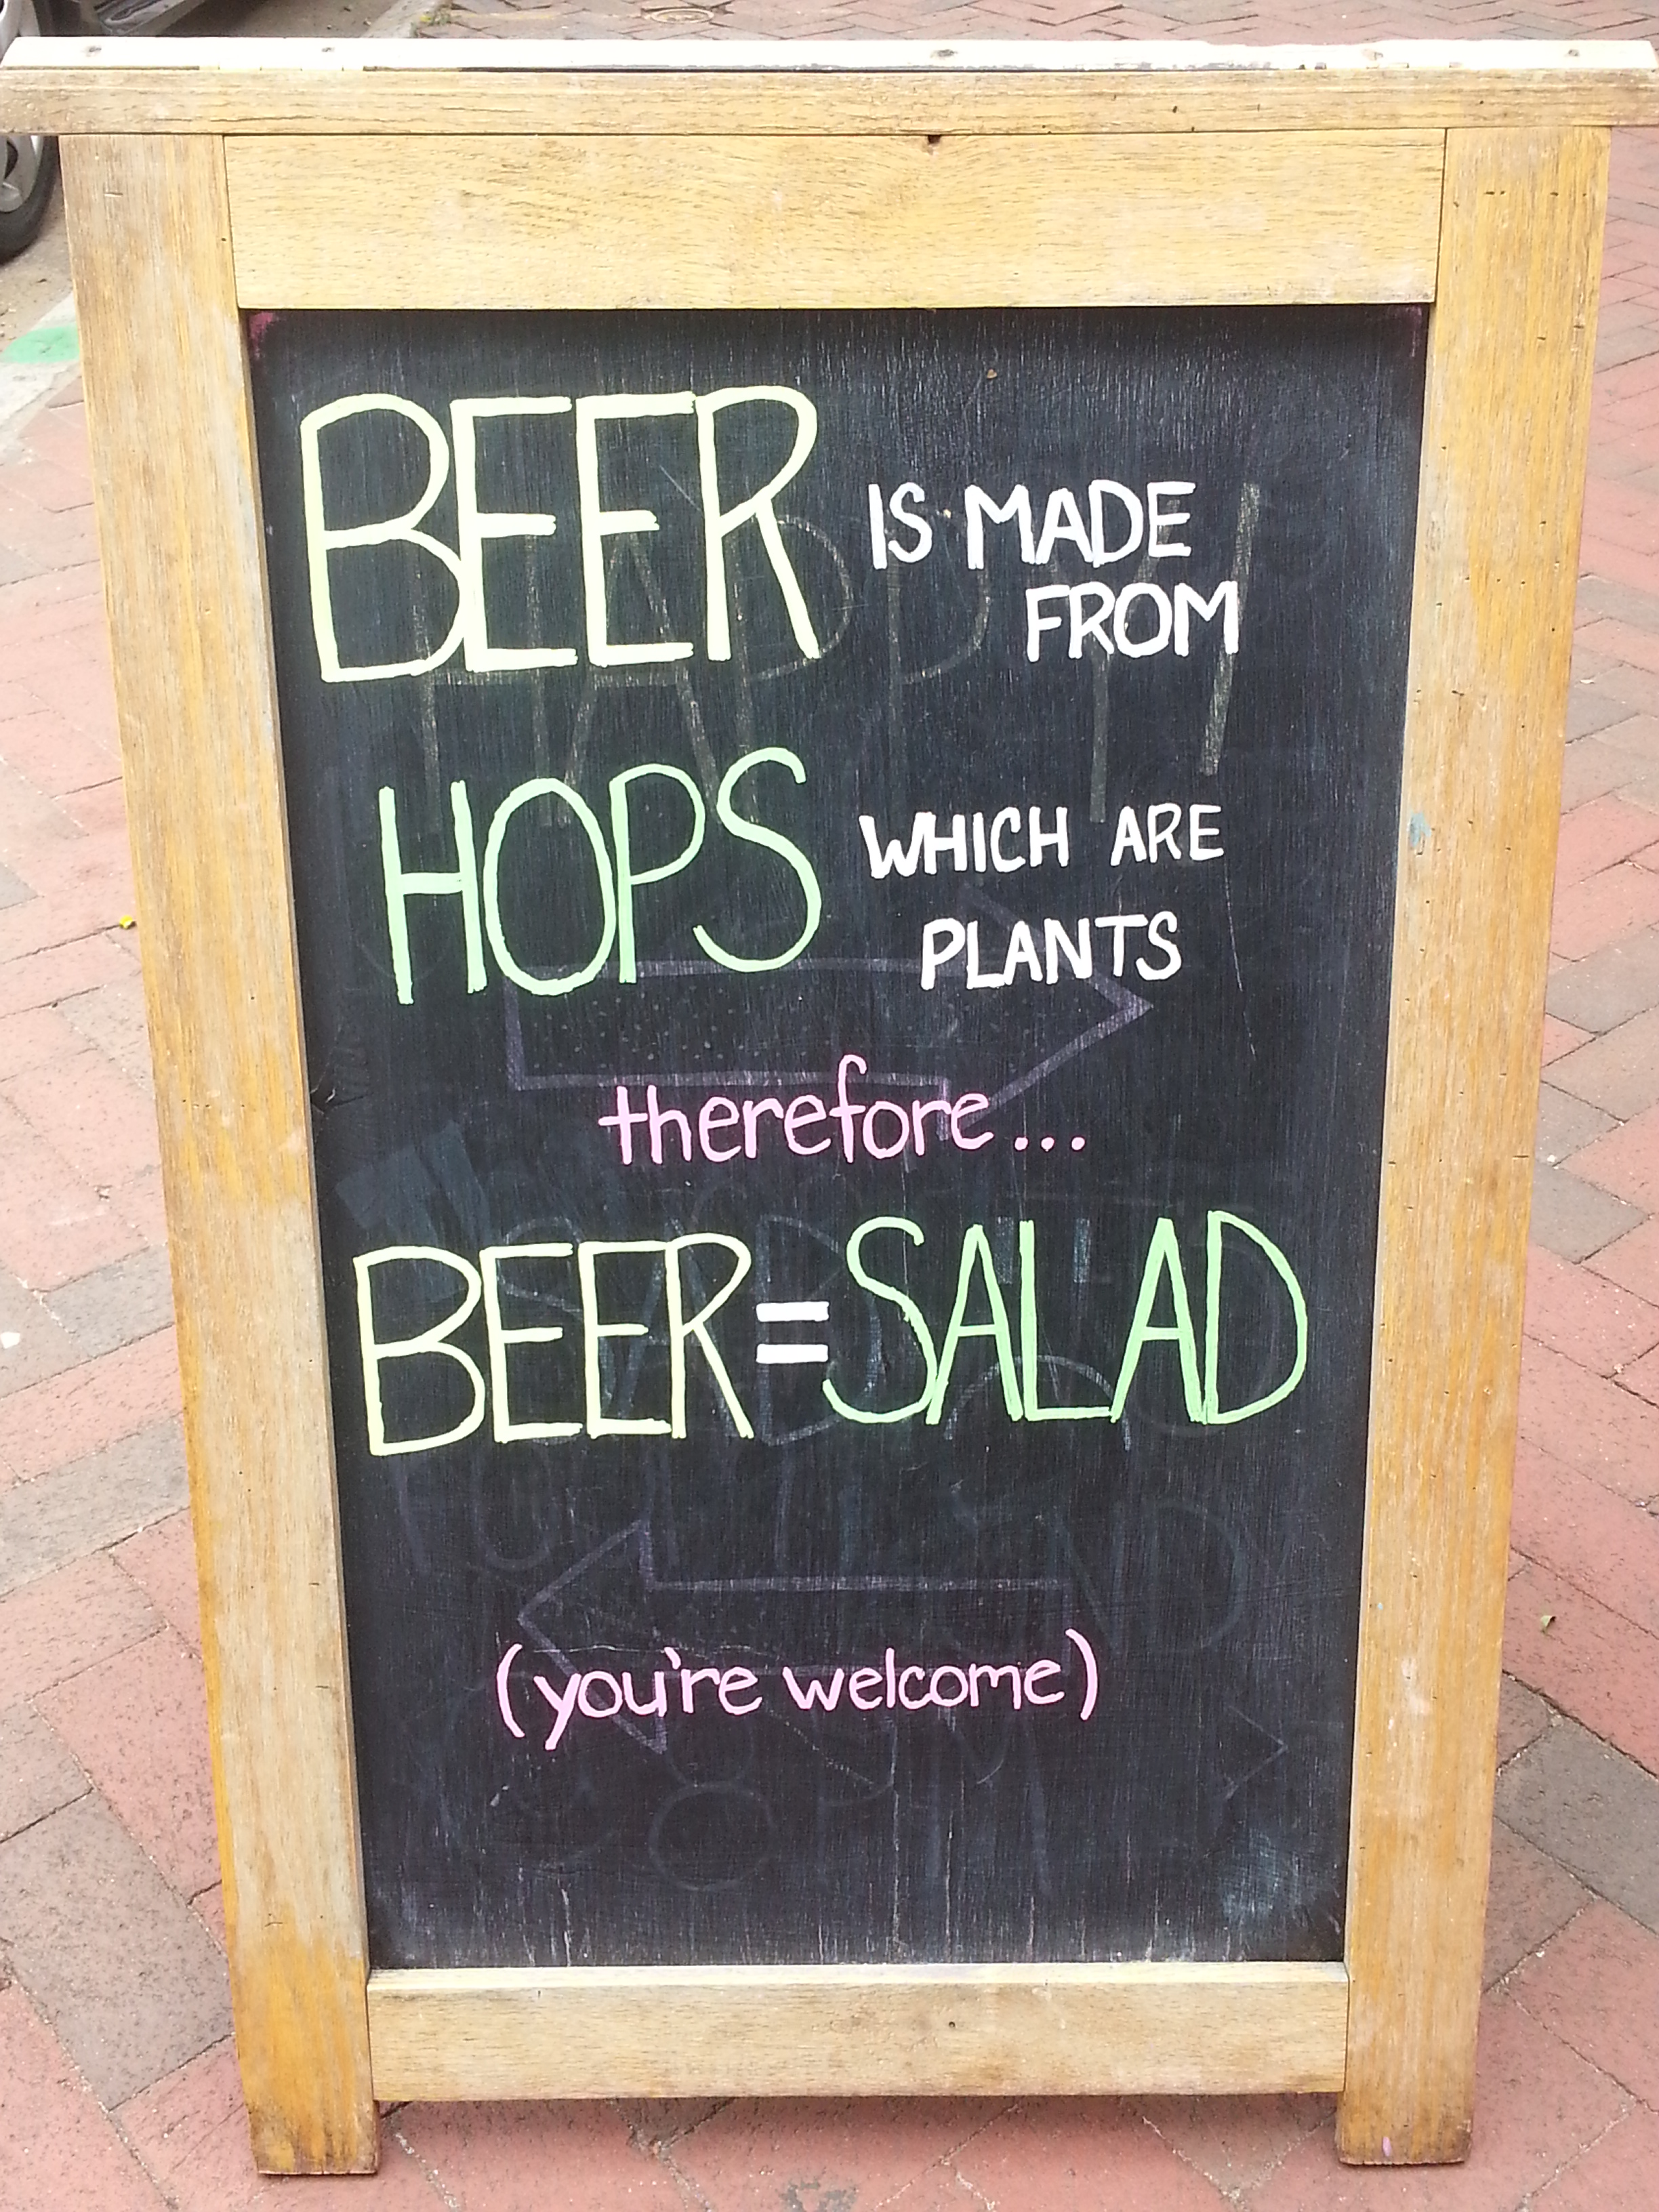 BEER IS MADE
FROM
HOPS WHICH ARE
PLANTS
therefore...
BEER=SALAD
(you're welcome)